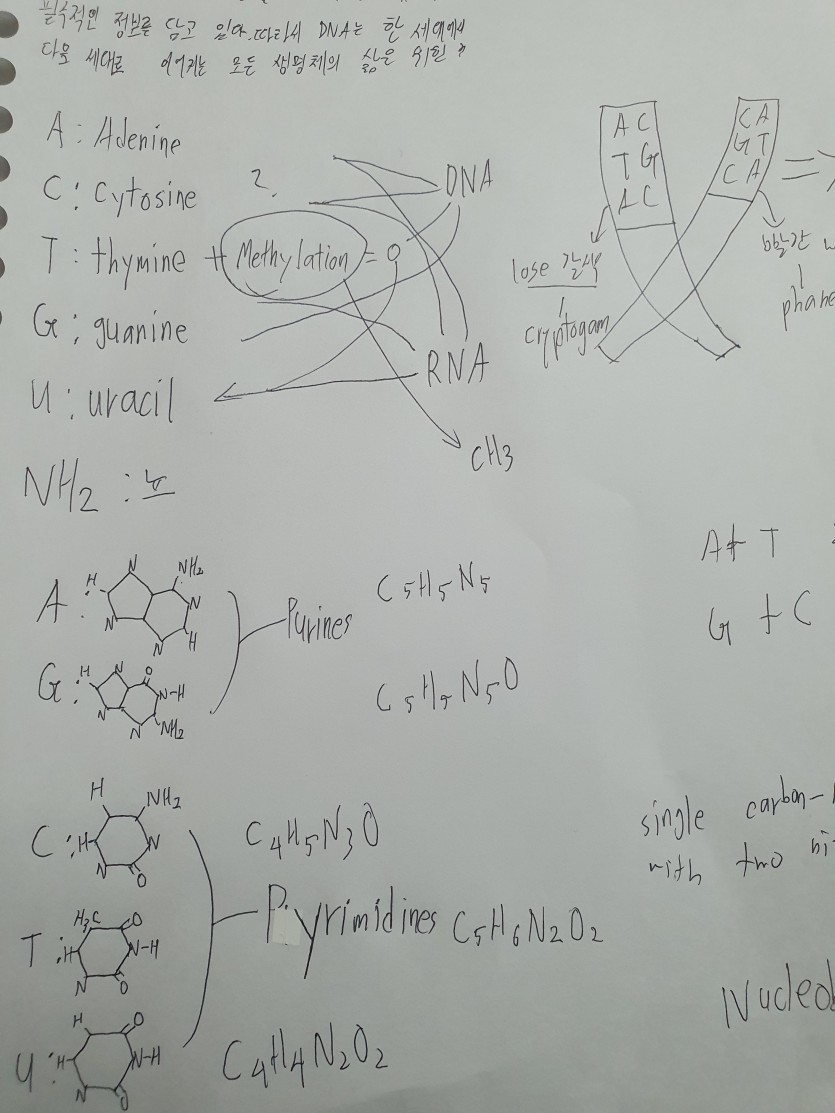 필수적인 정보를 담고 있다. 따라서 DNA는 한 세대에서
다음 세대로 이어지는 모든 생명체의 삶은 위한 ?
A : Adenine
C : Cytosine
T : thymine + Methylation = 0
G : guanine
U : uracil
NH2 :
2.
DNA
RNA
CH3
A C
T G
A C
C A
G T
C A
=>
lose 갈색
cryptogam
빨간
phane
A : H N NH2 N H N N
G : H N O N-H NH2 N N
Purines
C5H5N5
C5H5N5O
A + T
G + C
C : H NH2 H N N O
T : H3C O H N-H N O
U : H O H N-H N O
C4H5N3O
Pyrimidines C5H6N2O2
C4H4N2O2
single carbon-
with two ni
Nucleo